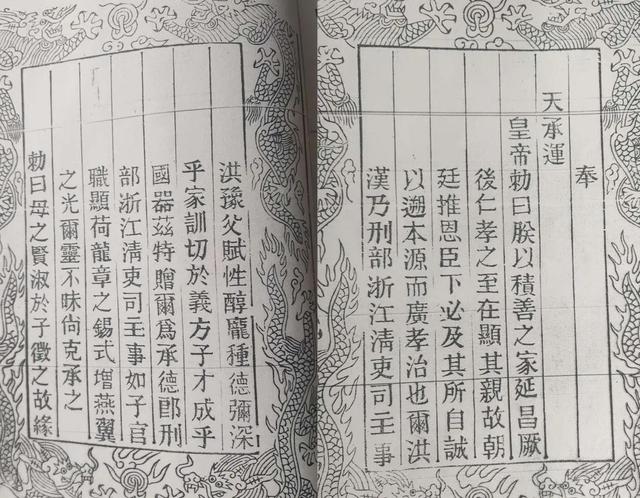 奉
天承運
皇帝勅曰朕以積善之家延昌厥
後仁孝之至在顯其親故朝
廷推恩臣下必及其所自誠
以遡本源而廣孝治也爾洪
漢乃刑部浙江清吏司主事
洪豫父賦性醇龐種德彌深
乎家訓切於義方子才成乎
國器茲特贈爾爲承德郎刑
部浙江清吏司主事如子官
職顯荷龍章之錫式增燕翼
之光爾靈不昧尙克承之
勅曰母之賢淑於子徵之故緣